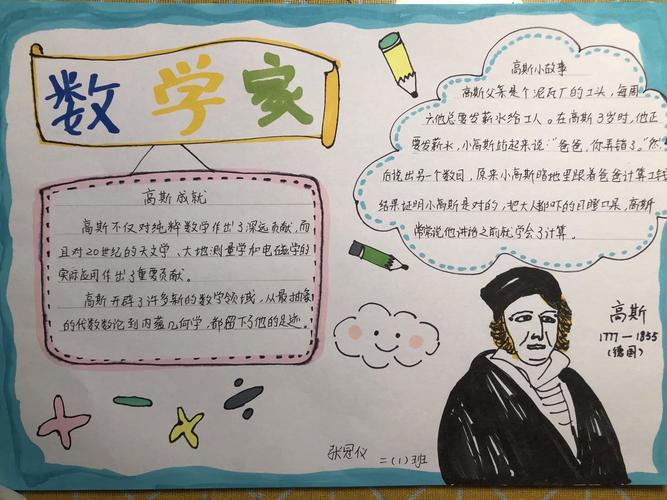 数学家
高斯成就
高斯不仅对纯粹数学作出了深远贡献,而
且对20世纪的天文学、大地测量学和电磁学的
实际应用作出了重要贡献。
高斯开辟了许多新的数学领域,从最抽象
的代数数论到内蕴几何学,都留下了他的足迹。
高斯小故事
高斯父亲是个泥瓦厂的工头,每周
六他总要发薪水给工人。在高斯3岁时,他正
要发薪水,小高斯站起来说:“爸爸,你弄错了。”然
后说出另一个数目,原来小高斯暗地里跟着爸爸计算工钱
结果证明小高斯是对的,把大人都吓的目瞪口呆,高斯
常常说他讲话之前就学会了计算。
高斯
1777—1855
(德国)
张冠仪 二(1)班